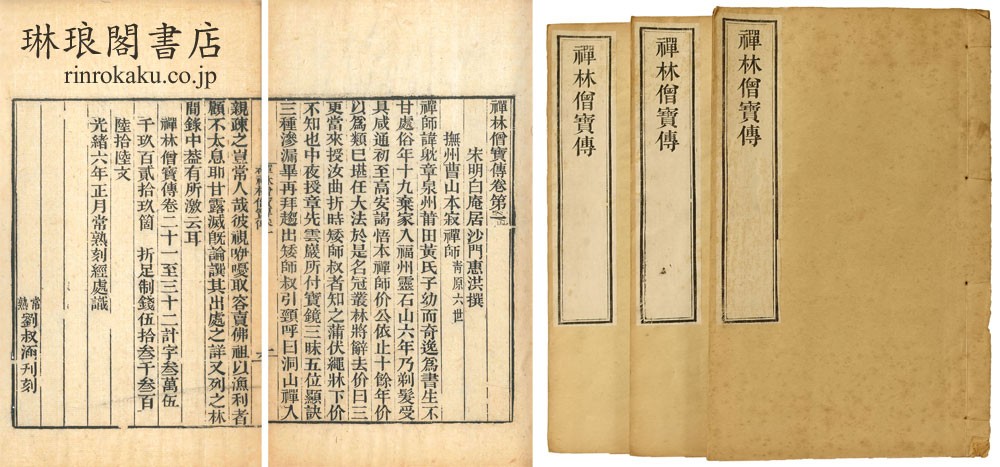 琳琅閣書店
rinrokaku.co.jp
禪林僧寶傳卷第一
宋明白庵居沙門惠洪撰
撫州曹山本寂禪師 青原六世
禪師諱耽章泉州莆田黃氏子幼而奇逸爲書生不
甘處俗年十九棄家入福州靈石山六年乃剃髮受
具咸通初至高安謁悟本禪師价公依止十餘年价
以爲類已堪任大法於是名冠叢林將辭去价曰三
更當來授汝曲折時矮師叔者知之蒲伏繩牀下价
不知也中夜授章先雲巖所付寶鏡三昧五位顯訣
三種滲漏畢再拜趨出矮師叔引頸呼曰洞山禪入
親疎之豈常人哉彼視咿嚘取容賣佛祖以漁利者
顧不太息耶甘露滅旣論譔其出處之詳又列之林
間錄中葢有所激云耳
禪林僧寶傳卷二十一至三十二計字叁萬伍
千玖百貳拾玖箇 折足制錢伍拾叁千叁百
陸拾陸文
光緒六年正月常熟刻經處識
常熟 劉叔涵刋刻
禪林僧寶傳
禪林僧寶傳
禪林僧寶傳